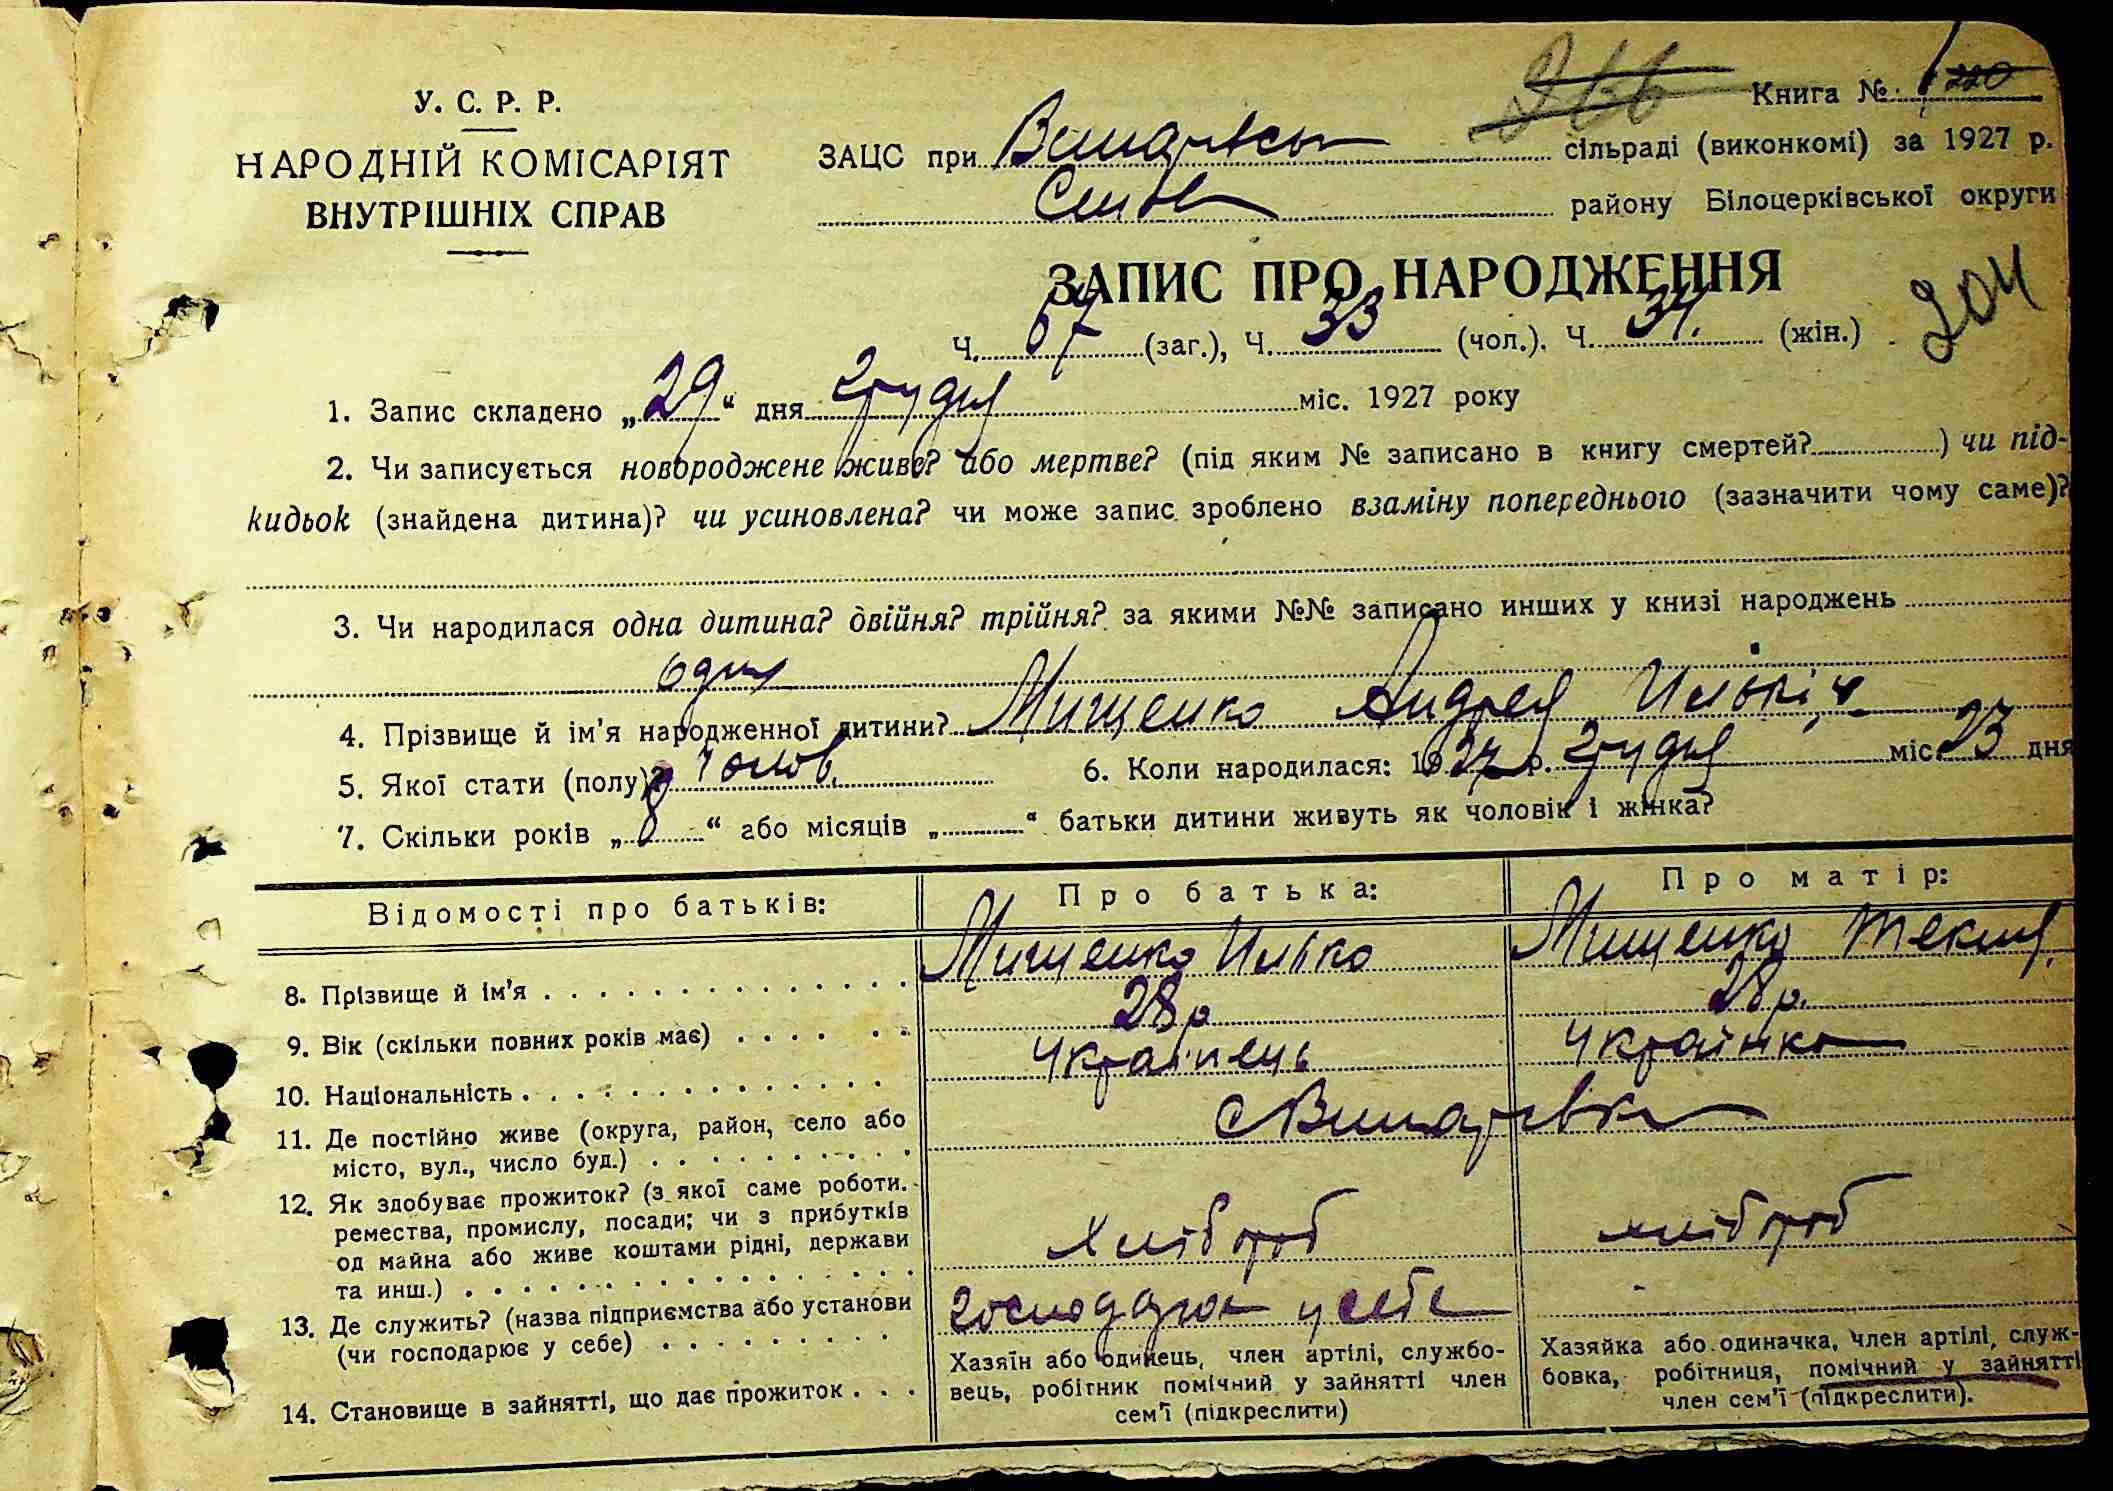 Книга № 220
У. С. Р. Р.
НАРОДНІЙ КОМІСАРІЯТ
ВНУТРІШНІХ СПРАВ
ЗАЦС при сільраді (виконкомі) за 1927 р.
району Білоцерківської округи
ЗАПИС ПРО НАРОДЖЕННЯ
204
Ч. 67 (заг.), Ч. 33 (чол.). Ч. 34. (жін.)
1. Запис складено „29“ дня грудня міс. 1927 року
2. Чи записується новороджене живе? або мертве? (під яким № записано в книгу смертей? ) чи під-
кидьок (знайдена дитина)? чи усиновлена? чи може запис зроблено взаміну попереднього (зазначити чому саме)?
3. Чи народилася одна дитина? двійня? трійня? за якими №№ записано инших у книзі народжень
одна
4. Прізвище й ім'я народженної дитини? Мищенко Андрей Илькіч
5. Якої стати (полу)? чолов. 6. Коли народилася: 1927 р. грудня міс. 23 дня
7. Скільки років „8“ або місяців „ “ батьки дитини живуть як чоловік і жінка?
Відомості про батьків: Про батька: Про матір:
8. Прізвище й ім'я Мищенко Илько Мищенко Текля.
9. Вік (скільки повних років має) 28 р 28 р.
10. Національність Українець Українка
11. Де постійно живе (округа, район, село або
місто, вул., число буд.)
12. Як здобуває прожиток? (з якої саме роботи.
ремества, промислу, посади; чи з прибутків
од майна або живе коштами рідні, держави
та инш.) Хлібороб хлібороб
13. Де служить? (назва підприємства або установи
(чи господарює у себе) господарює у себе
14. Становище в зайнятті, що дає прожиток
Хазяїн або одинець, член артілі, службо-
вець, робітник помічний у зайнятті член
сем'ї (підкреслити)
Хазяйка або одиначка, член артілі, служ-
бовка, робітниця, помічний у зайнятті
член сем'ї (підкреслити).